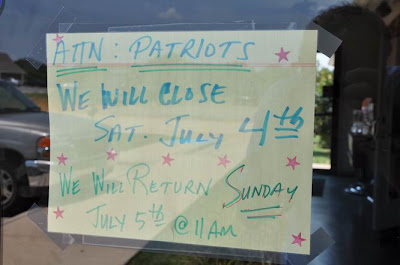 ATTN: PATRIOTS
WE WILL CLOSE
SAT. JULY 4th
WE WILL RETURN SUNDAY
JULY 5th @ 11AM